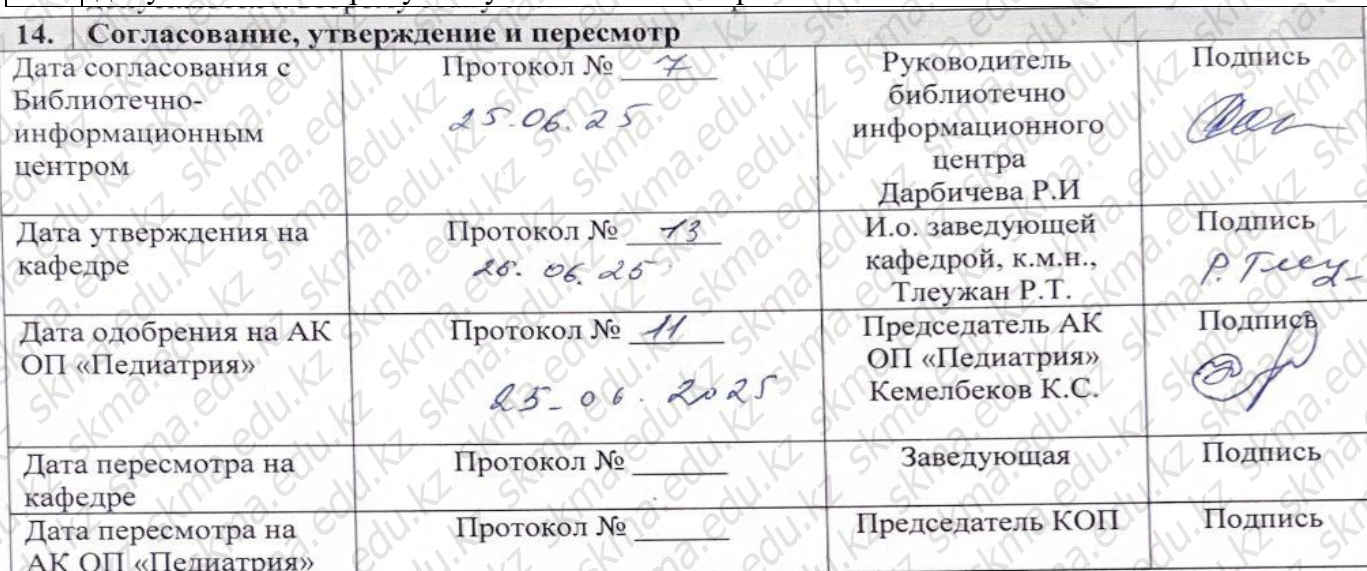 14. Согласование, утверждение и пересмотр
Дата согласования с
Библиотечно-
информационным
центром
Протокол № 7
25.06.25
Руководитель
библиотечно
информационного
центра
Дарбичева Р.И
Подпись
Дата утверждения на
кафедре
Протокол № 13
26. 06. 25
И.о. заведующей
кафедрой, к.м.н.,
Тлеужан Р.Т.
Подпись
Р. Тлеу
Дата одобрения на АК
ОП «Педиатрия»
Протокол № 11
25. 06. 2025
Председатель АК
ОП «Педиатрия»
Кемелбеков К.С.
Подпись
Дата пересмотра на
кафедре
Протокол №
Заведующая
Подпись
Дата пересмотра на
АК ОП «Педиатрия»
Протокол №
Председатель КОП
Подпись
skma.edu.kz